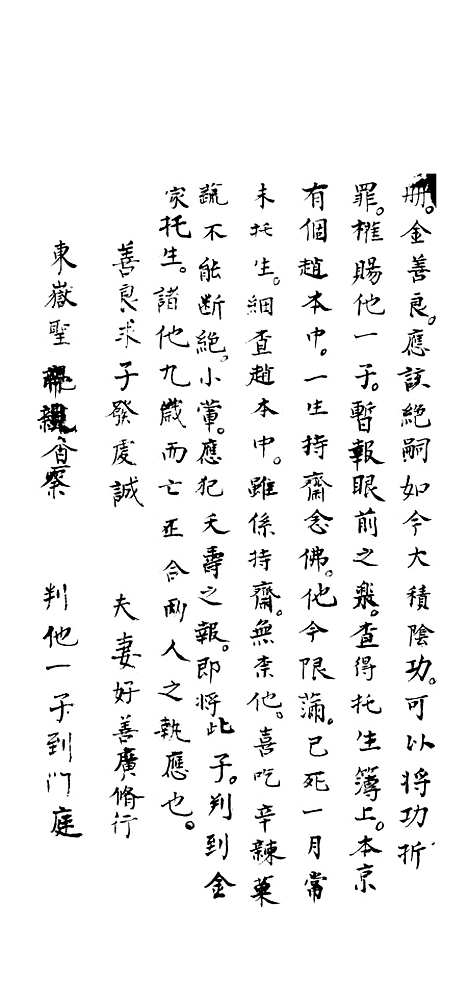 册。金善良。應該絕嗣如今大積陰功。可以將功折
罪。權賜他一子。暫報眼前之。查得托生簿上。本京
有個趙本中。一生持齋念佛。他今限滿。已死一月常
未托生。細查趙本中。雖係持齋。無柰他。喜吃辛辣葷
蔬不能斷絕。小葷。應犯夭壽之報。即將此子。判到金
家托生。諸他九歲而亡正合兩人之執應也。
善良求子發虔誠 夫妻好善廣脩行
東嶽聖 察 判他一子到門庭